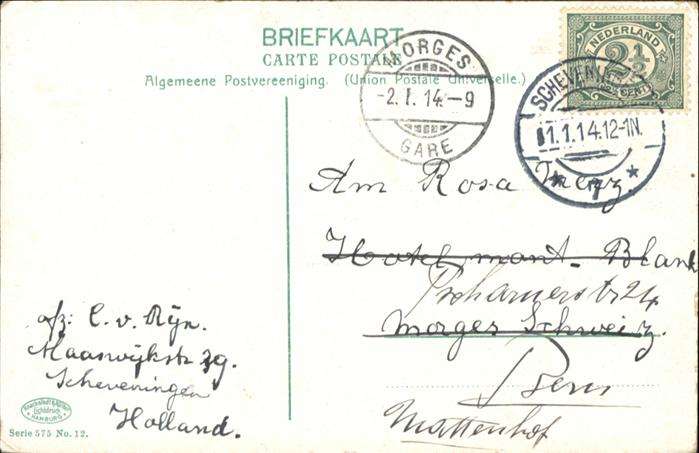 BRIEFKAART
CARTE POSTALE
Algemeene Postvereeniging. (Union Postale Universelle.)
MORGES
-2.I.14.-9
GARE
NEDERLAND
2½
CENT
SCHEVEN
1.1.14.12-1N.
Am Rosa Merz.
Hotel mont-Blank
Tscharnerstr 24
Morges Schweiz.
Bern
Mattenhof
afz: C. v. Rÿn.
Maaswÿkstr 39.
Scheveningen
Holland.
Knackstedt & Näther
Lichtdruck
HAMBURG
Serie 575 No. 12.